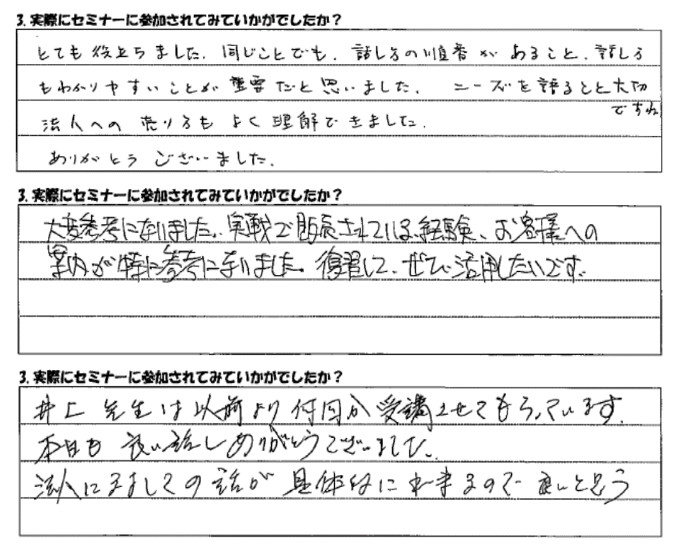 3. 実際にセミナーに参加されてみていかがでしたか？
とても役立ちました。同じことでも、話し方の順番があること、話し方
もわかりやすいことが重要だと思いました。ニーズを語ること大切
ですね
法人への売り方もよく理解できました。
ありがとうございました。
3. 実際にセミナーに参加されてみていかがでしたか？
大変参考になりました。実戦で販売されている経験、お客様への
案内が特に参考になりました。復習して、ぜひ活用したいです。
3. 実際にセミナーに参加されてみていかがでしたか？
井上先生は以前より何回か受講させてもらっています。
本日も良い話しありがとうございました。
法人にましての話が具体的に ので良いと思う